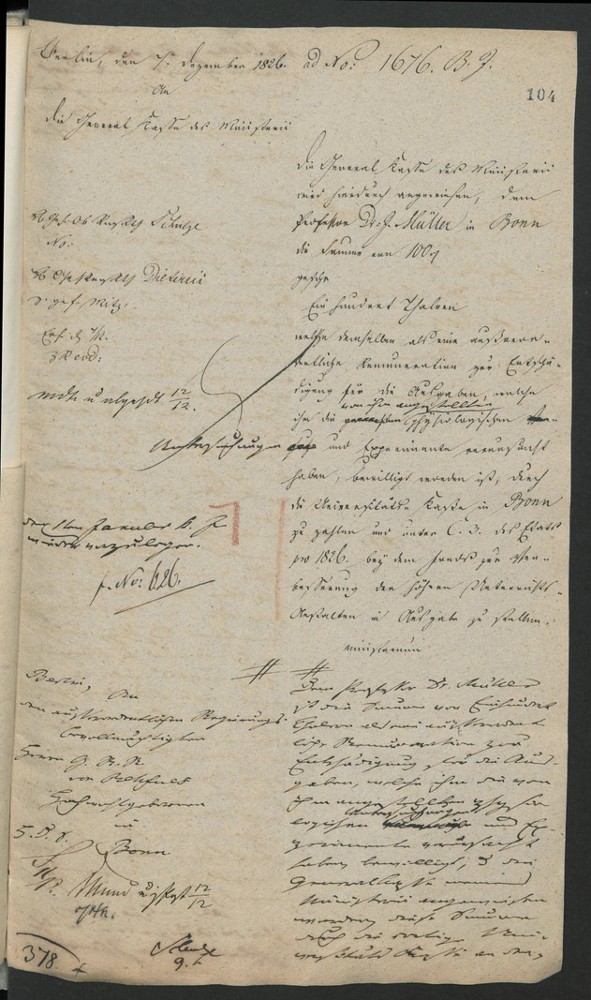 Berlin, den 7. Dezember 1826. ad No: 1676. B. J.
104
An
die General Kasse des Ministerii
Die General Kasse des Ministerii
wird hierdurch angewiesen, dem
Professor Dr. J. Müller in Bonn
die Summe von 100
Ein hundert Thalern
welche demselben als eine außeror-
dentliche Remuneration zur Entschä-
digung für die Ausgaben, welche
von ihm angestellten
ihm die physiologischen
Untersuchungen und Experimente verursacht
haben, bewilligt worden ist, durch
die Universitäts Kasse in Bonn
zu zahlen und unter C. 3. des Etats
pro 1826. bey dem Fonds zur Ver-
besserung der höhern Unterrichts-
Anstalten in Ausgabe zu stellen.
Ministerium
Schulze
No:
Dieterici
12/12.
den 1ten Januar k. J.
wieder vorzulegen.
f. No: 626.
Berlin,
An
den außerordentlichen Regierungs-
bevollmächtigten
Herrn G. R. R.
von Rehfues
Hochwohlgeboren
in
Bonn
12/12
378
Dem Professor Dr. Müller
ist die Summe von Einhundert
Thalern als eine außerordent
liche Remuneration zur
Entschädigung für die Aus-
gaben, welche ihm die von
ihm angestellten physio
logischen Untersuchungen und Ex-
perimente verursacht
haben bewilligt, u die
Generalkasse meines
Ministerii angewiesen
worden diese Summe
durch die dortige Univer-
sitäts Kasse an den